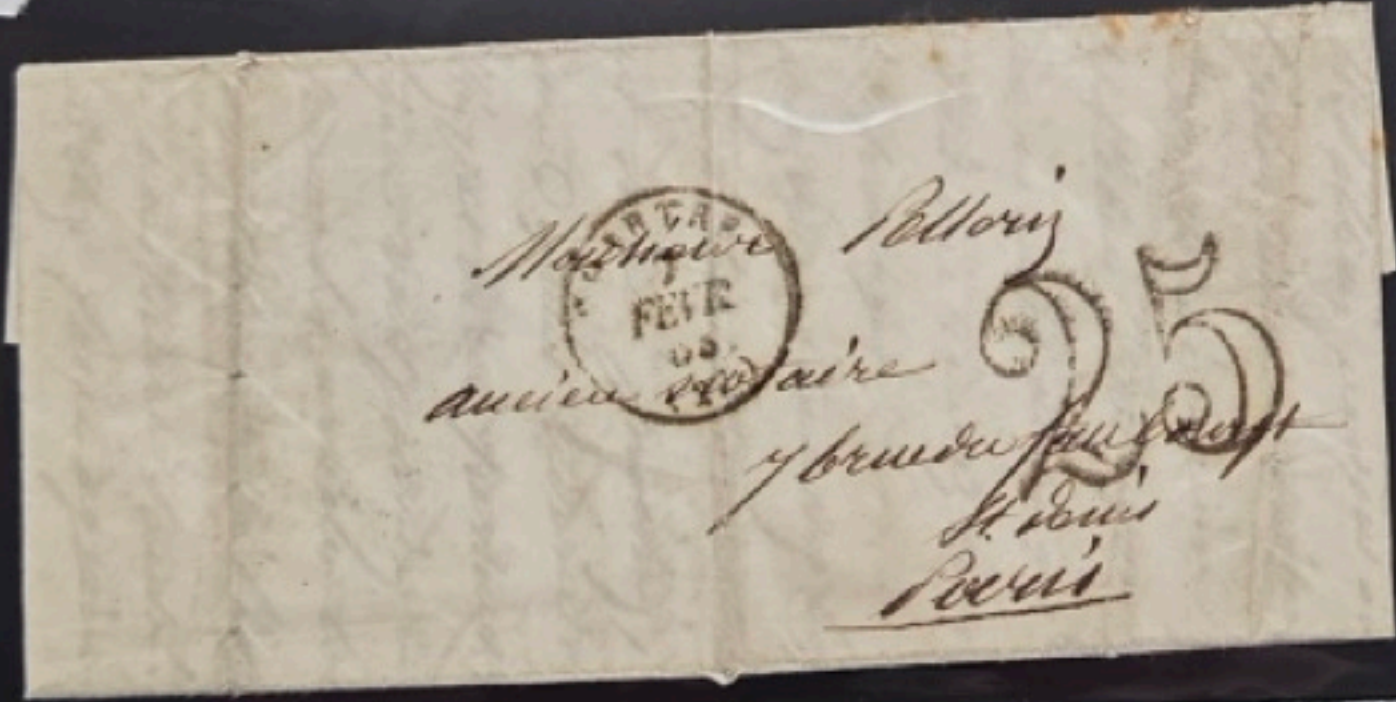 Monsieur Pellorij
FEVR
ancien notaire
25
rue du faubourg
St. denis
Paris